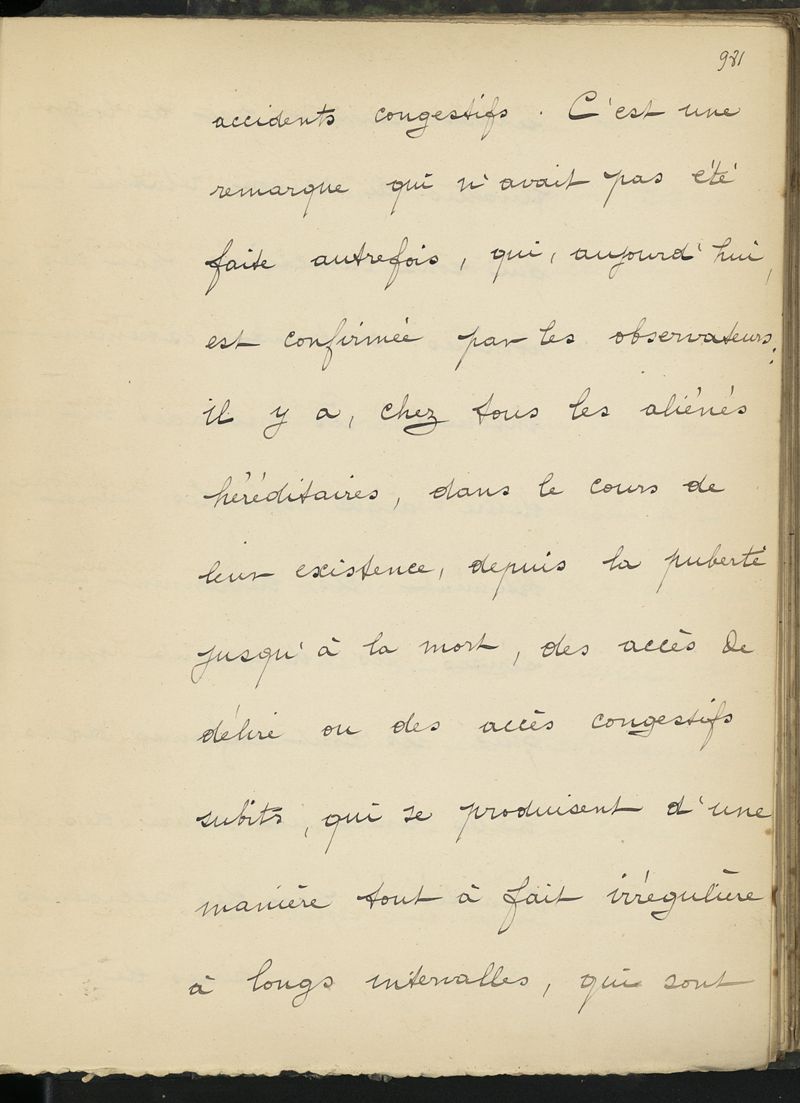 981
accidents congestifs. C'est une
remarque qui n'avait pas été
faite autrefois, qui, aujourd'hui,
est confirmée par les observateurs;
il y a, chez tous les aliénés
héréditaires, dans le cours de
leur existence, depuis la puberté
jusqu'à la mort, des accès de
délire ou des accès congestifs
subits, qui se produisent d'une
manière tout à fait irrégulière
à longs intervalles, qui sont